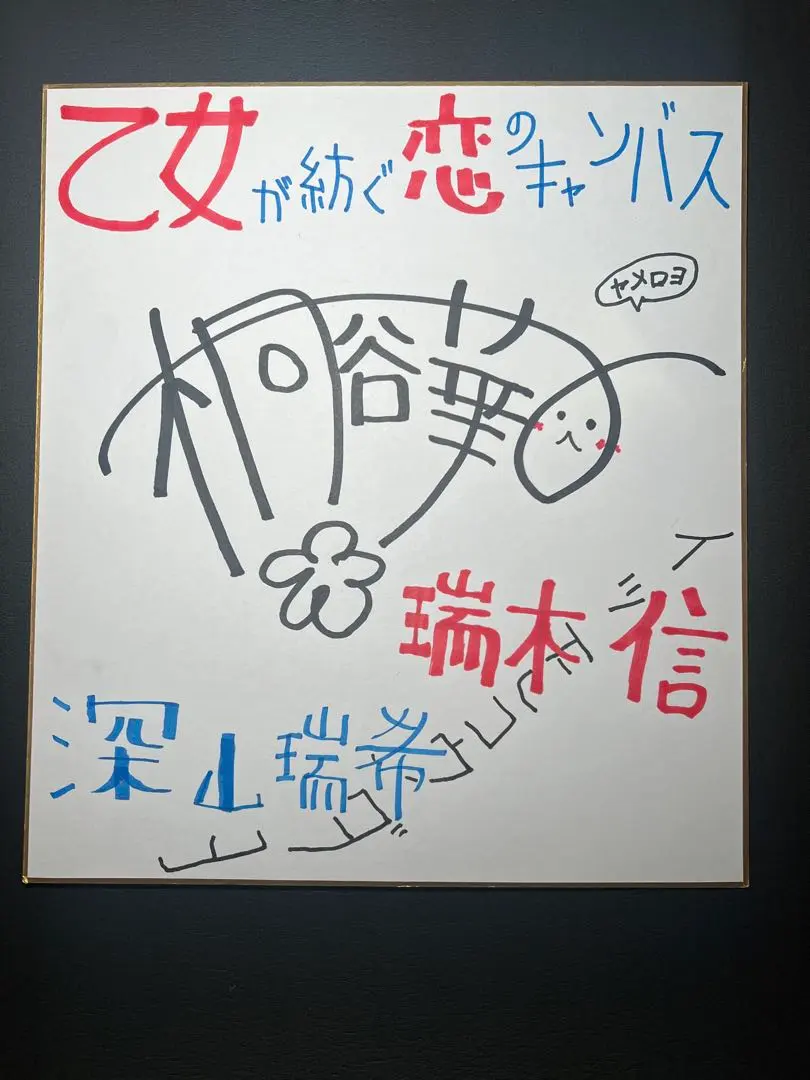 乙女が紡ぐ恋のキャンバス
ヤメロヨ
桐谷華
瑞木信
深山瑞希